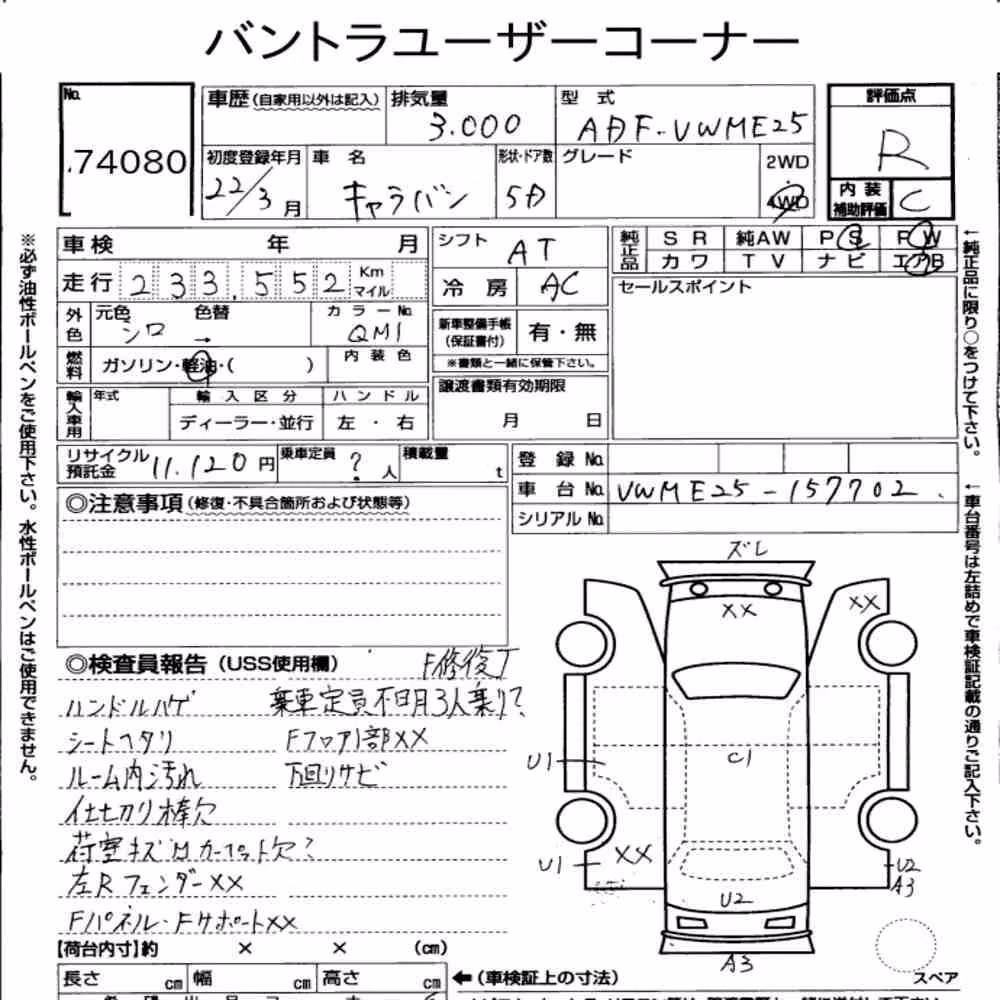 バントラユーザーコーナー
No.
.74080
車歴(自家用以外は記入)
排気量
3.000
型 式
ADF-VWME25
評価点
R
初度登録年月
22/3月
車 名
キャラバン
形状・ドア数
5D
グレード
2WD
4WD
内装
補助評価
C
車検 年 月
シフト
AT
純正品
SR 純AW PS PW
カワ TV ナビ エアB
走行 233,552 Km
マイル
冷房
AC
セールスポイント
外色
元色
シロ
色替
→
カラーNo.
QM1
新車整備手帳
(保証書付)
有・無
※書類と一緒に保管下さい。
燃料
ガソリン・軽油・( )
内装色
譲渡書類有効期限
月 日
輸入車用
年式
輸入区分
ハンドル
ディーラー・並行
左・右
リサイクル
預託金
11.120円
乗車定員
?人
積載量
t
登録No.
車台No. VWME25-157702
シリアルNo.
◎注意事項(修復・不具合箇所および状態等)
◎検査員報告(USS使用欄)
F修復T
ハンドルハゲ
乗車定員不明3人乗り?
シートヘタリ
Fフロア1部XX
ルーム内汚れ
下回りサビ
仕切り棒欠
荷室キズMカーペット欠?
左RフェンダーXX
Fパネル・FサポートXX
ズレ
XX
XX
U1
C1
U1
XX
U2
A3
U2
A3
スペア
【荷台内寸】約 × × (cm)
長さ cm
幅 cm
高さ cm
←(車検証上の寸法)
※必ず油性ボールペンをご使用下さい。水性ボールペンはご使用できません。
←純正品に限り○をつけて下さい。
←車台番号は左詰めで車検証記載の通りご記入下さい。